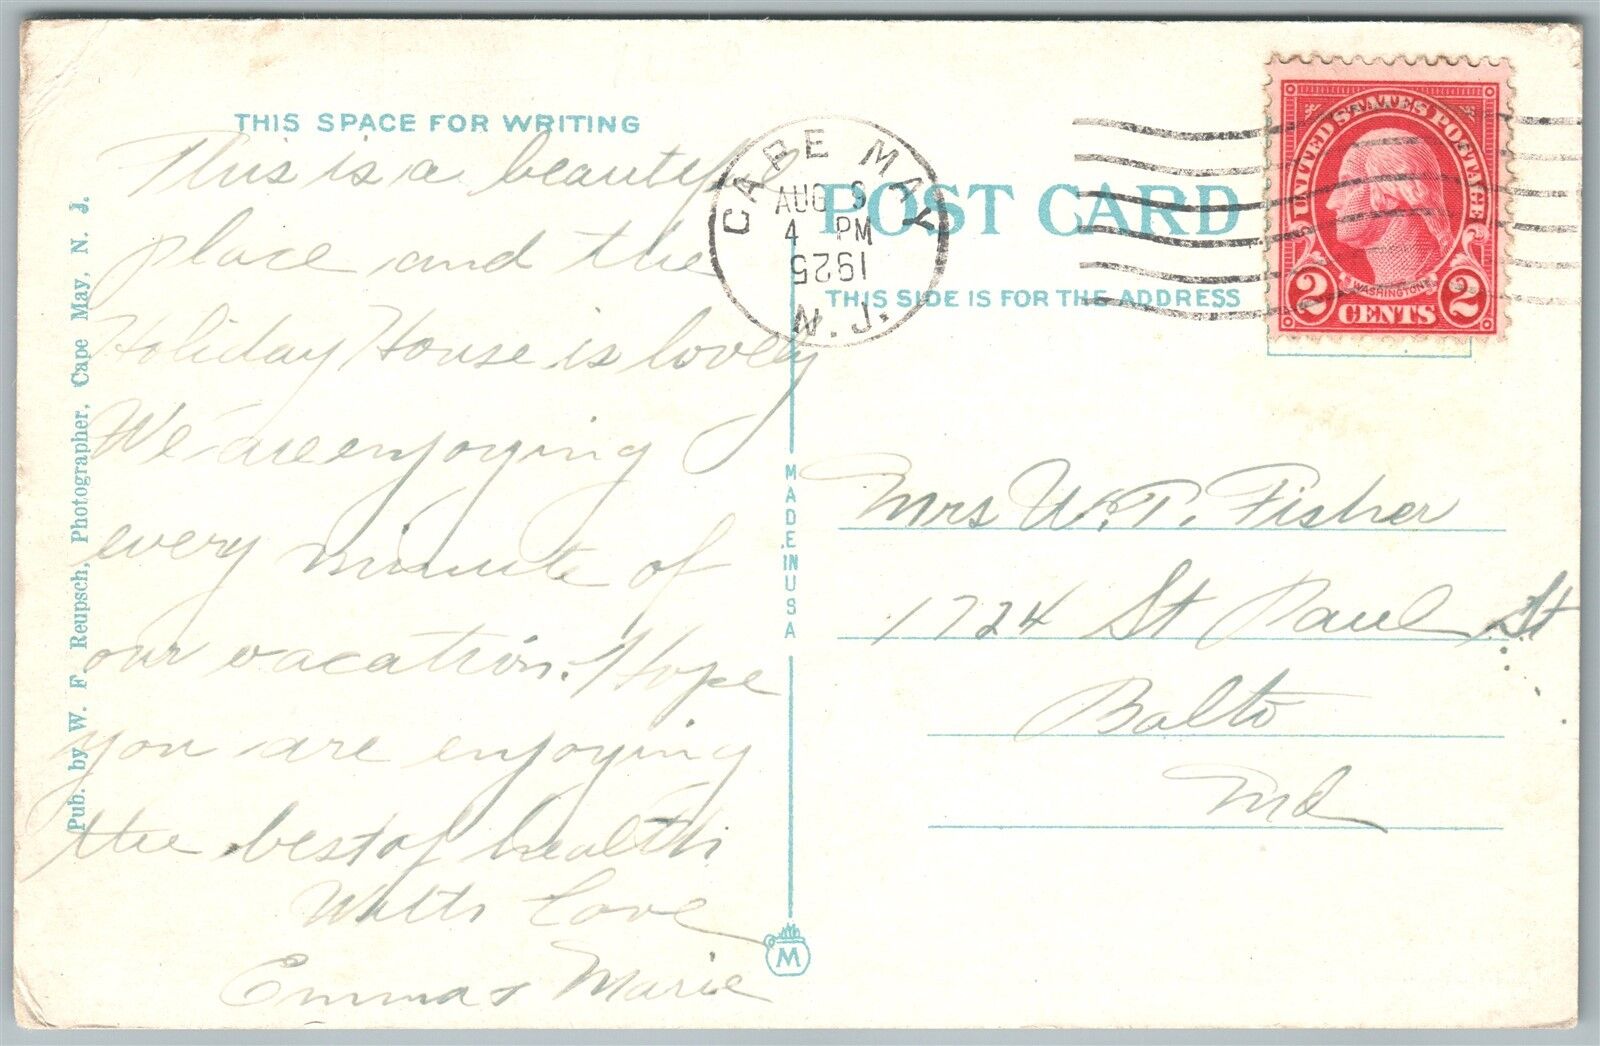 THIS SPACE FOR WRITING
This is a beautiful
place and the
Holiday House is lovely
We are enjoying
every minute of
our vacation. Hope
you are enjoying
the best of health
With Love
Emma & Marie
Pub. by W. F. Reupsch, Photographer, Cape May, N. J.
MADE IN USA
M
CAPE MAY
AUG 9
4 PM
1925
N.J.
POST CARD
THIS SIDE IS FOR THE ADDRESS
UNITED STATES POSTAGE
WASHINGTON
2 CENTS 2
Mrs W. T. Fisher
1724 St Paul St
Balto
Md